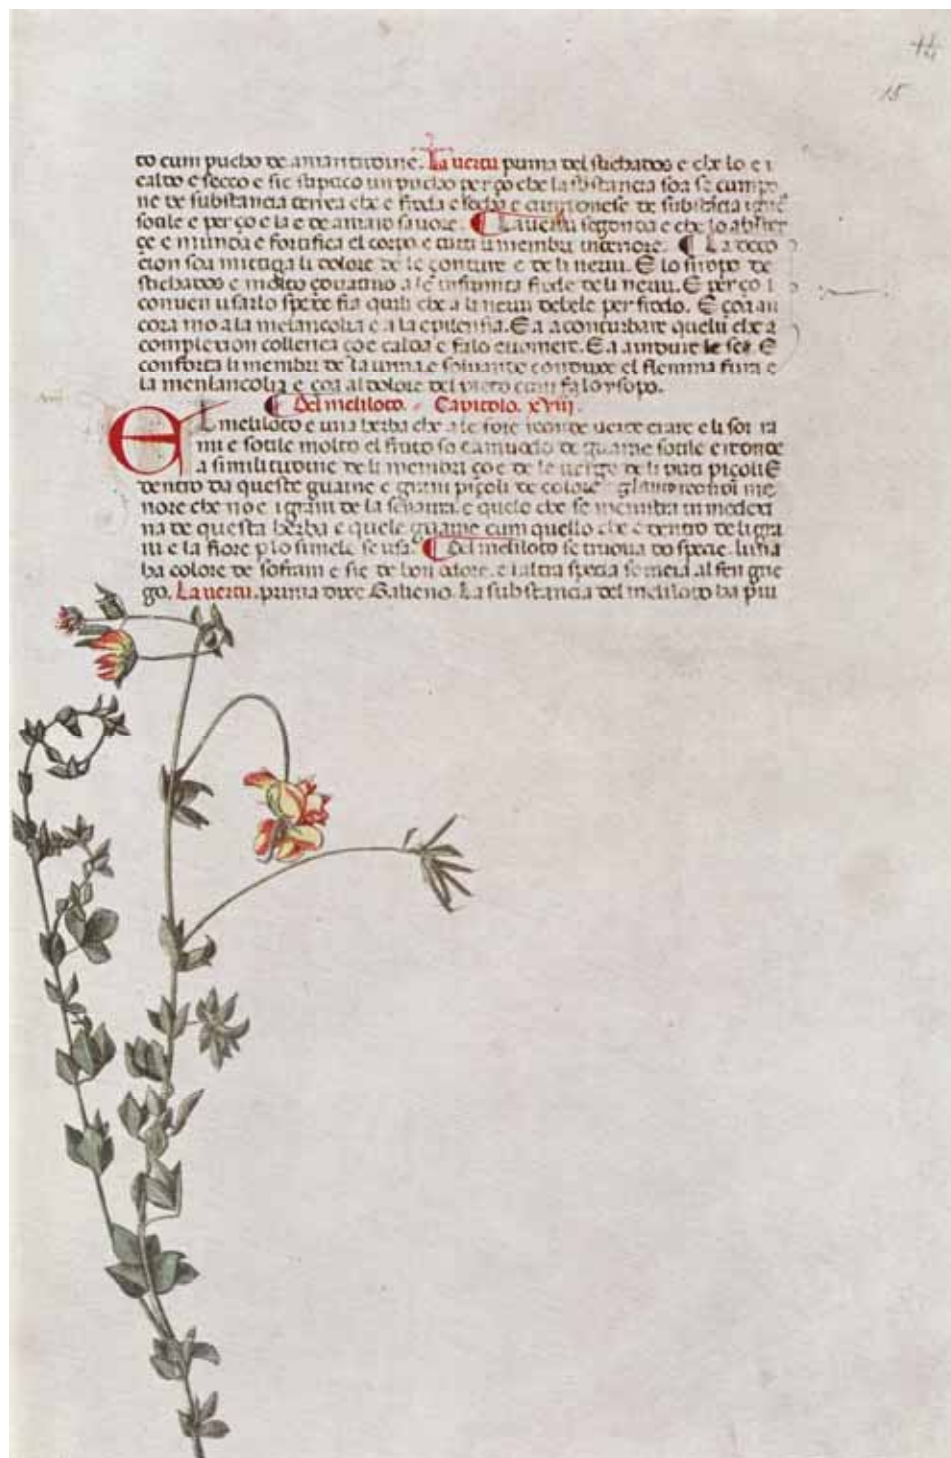 15
to cum pucho de amaritudine. La vertu prima del stichados e che lo e i
caldo e secco e sie stiptico un pucho per ço che la substancia soa se compo
ne de substancia terrea che e freda e secha e cum ponese de substācia igne
sotile e per ço e la e de amaro savore. La vertu segonda e che lo abster
çe e mundа e fortifica el corpo e tuti li membri interiore. La deco
cion soa mitiga li dolore de le çonture e de li nervi. E lo siropo de
stichados e molto çovativo a le infirmita frede de li nervi. E per ço i
conven usarlo spese fia quili che a li nervi debele per fredo. E çoa an
cora mo a la melancolia e a la epilensia. E a a conturbare quelu che a
complexion collerica çoe calda e falo vomere. E a a indure le sea E
conforta li membri de la urina e solvante conduxe el flemma fura e
la menlancolia e çoa al dolore del peto cum fa lo ysopo.
Del meliloto. Capitolo. xviii.
El meliloto e una herba che a le foie reonde verde crare e li soi ra
mi e sotile molto el fruto so e a muodo de guaine sotile e reonde
a similitudine de li membri çoe de le verge de li puti piçoli E
dentro da queste guaine e grani piçoli de colore giano reondi me
nore che no e i grani de la senavra. e quelo che se meniстra in medexi
na de questa herba e quele guaine cum quello che e dentro de li gra
ni e la fiore p lo simele se usa. Del meliloto se truova do specie. luna
ha colore de soffram e sie de bon odore. e laltra specia someia al fen gre
go. La vertu. prima dixe Galieno. La substancia del meliloto ha piu